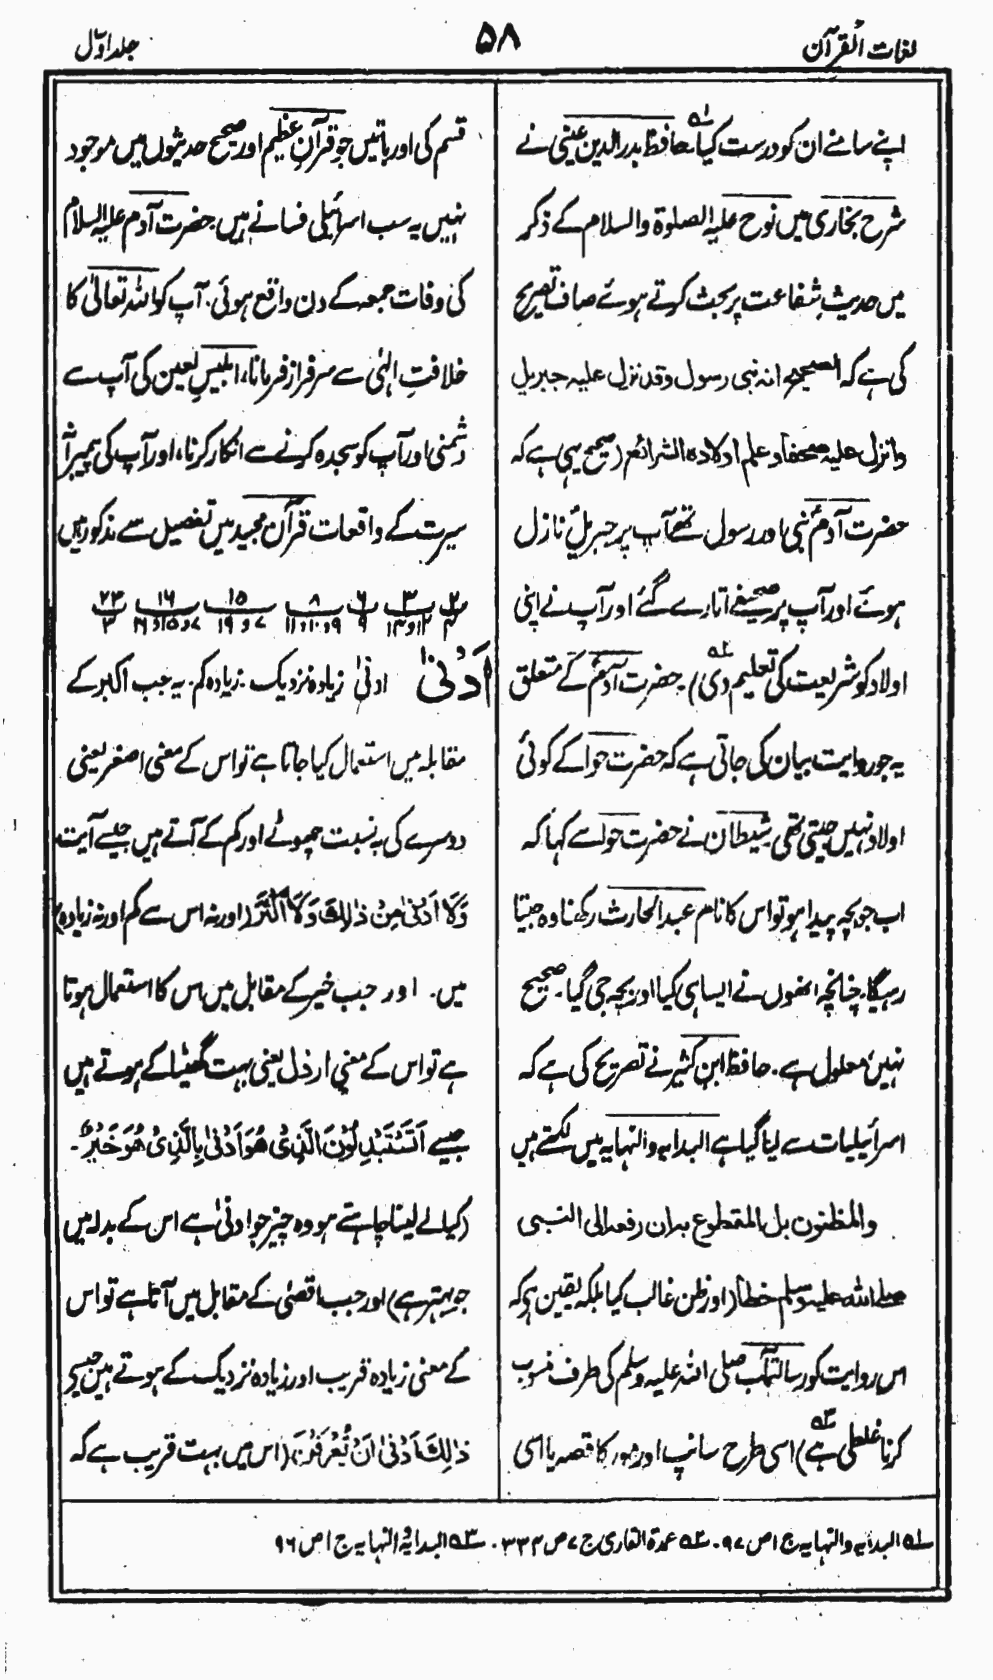 لغات القرآن
۵۸
جلد اوّل
اپنے سامنے ان کو درست کیا۔ لہ حافظ بدر الدین عینی نے
شرح بخاری میں نوح علیہ الصلوۃ والسلام کے ذکر
میں حدیثِ شفاعت پر بحث کرتے ہوئے صاف تصریح
کی ہے کہ الصحیح انہ نبی رسول وقد نزل علیہ جبریل
وانزل علیہ صحفا و علم اولادہ الشرائع (صحیح یہی ہے کہ
حضرت آدمؑ نبی اور رسول تھے آپ پر جبریلؑ نازل
ہوئے اور آپ پر صحیفے اتارے گئے اور آپ نے اپنی
اولاد کو شریعت کی تعلیم دی) ۲ہ حضرت آدمؑ کے متعلق
یہ جو روایت بیان کی جاتی ہے کہ حضرت حوا کے کوئی
اولاد نہیں جیتی تھی شیطان نے حضرت حوا سے کہا کہ
اب جو بچہ پیدا ہو تو اس کا نام عبد الحارث رکھنا وہ جیتا
رہیگا۔ چنانچہ انھوں نے ایسا ہی کیا اور بچہ جی گیا۔ صحیح
نہیں معلول ہے۔ حافظ ابن کثیر نے تصریح کی ہے کہ
اسرائیلیات سے لیا گیا ہے البدایہ والنہایہ میں لکھتے ہیں
والمظنون بل المقطوع بہ ان رفعہ الی النبی
صلے اللہ علیہ وسلم خطأ (اور ظن غالب کیا بلکہ یقین ہے کہ
اس روایت کو رسالتمآب صلی اللہ علیہ وسلم کی طرف منسوب
کرنا غلطی ہے) ۳ہ اسی طرح سانپ اور مور کا قصہ یا اسی
قسم کی اور باتیں جو قرآن عظیم اور صحیح حدیثوں میں موجود
نہیں یہ سب اسرائیلی فسانے ہیں۔ حضرت آدم علیہ السلام
کی وفات جمعہ کے دن واقع ہوئی۔ آپ کو اللہ تعالیٰ کا
خلافتِ الٰہی سے سرفراز فرمانا، ابلیسِ لعین کی آپ سے
دشمنی اور آپ کو سجدہ کرنے سے انکار کرنا، اور آپ کی
سیرت کے واقعات قرآن مجید میں تفصیل سے مذکور ہیں
۲ ۳ ۶ ۸ ۱۵ ۱۶ ۲۳
۴ ۱۲و۱۴ ۹ ۹و۱۰و۱۱ ۷و۱۹ ۷و۱۵و۱۶ ۳
اَدْنیٰ ادنیٰ زیادہ نزدیک۔ زیادہ کم۔ یہ جب اکبر کے
مقابلہ میں استعمال کیا جاتا ہے تو اس کے معنی اصغر یعنی
دوسرے کی بہ نسبت چھوٹے اور کم کے آتے ہیں جیسے آیت
وَلَا اَدْنیٰ مِنْ ذٰلِكَ وَلَا اَكْثَرَ (اور نہ اس سے کم اور نہ زیادہ)
میں۔ اور جب خیر کے مقابل میں اس کا استعمال ہوتا
ہے تو اس کے معنی ارذل یعنی بہت گھٹیا کے ہوتے ہیں
جیسے اَتَسْتَبْدِلُوْنَ الَّذِیْ هُوَ اَدْنیٰ بِالَّذِیْ هُوَ خَیْرٌ۔
(کیا لے لینا چاہتے ہو وہ چیز جو ادنیٰ ہے اس کے بدلہ میں
جو بہتر ہے) اور جب اقصیٰ کے مقابل میں آتا ہے تو اس
کے معنی زیادہ قریب اور زیادہ نزدیک کے ہوتے ہیں جیسے
ذٰلِكَ اَدْنیٰ اَنْ یُّعْرَفْنَ (اس میں بہت قریب ہے کہ
۱ہ البدایہ والنہایہ ج ۱ ص ۹۷۔ ۲ہ عمدۃ القاری ج ۷ ص ۳۳۲۔ ۳ہ البدایہ والنہایہ ج ۱ ص ۹۶